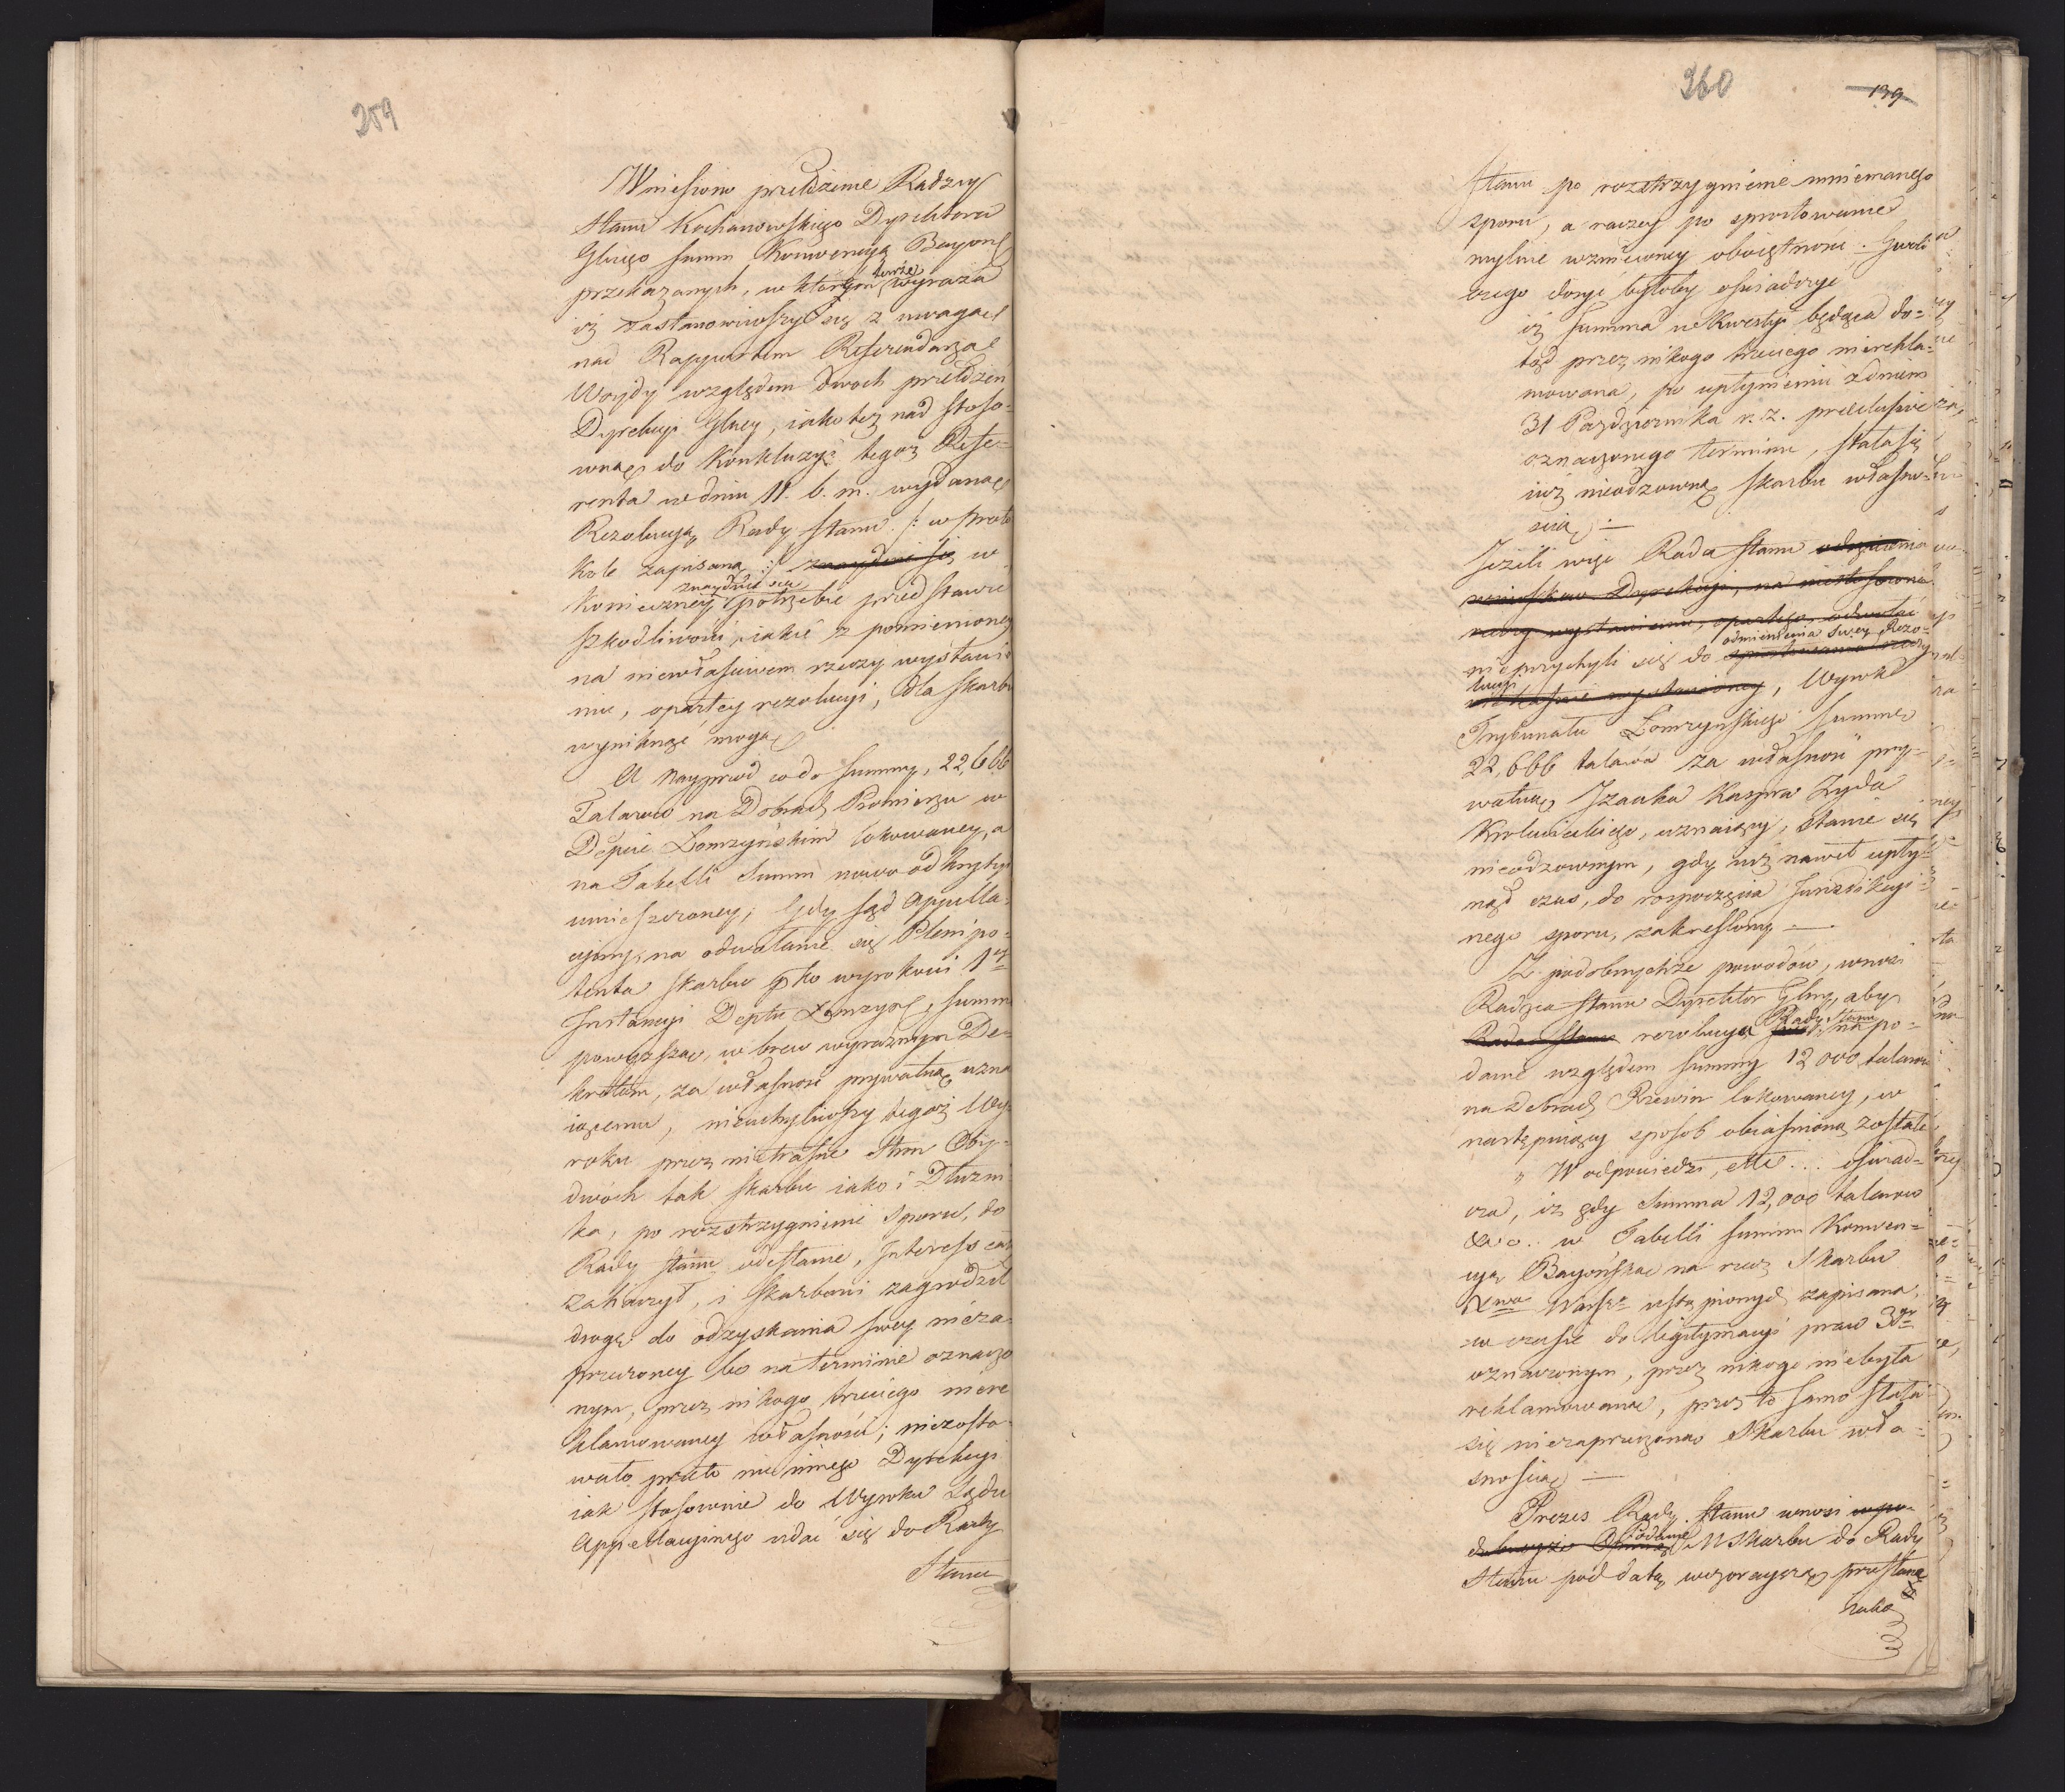 259
Wniesiono przełożenie Radzcy
Stanu Kochanowskiego Dyrektora
Głngo summ Konwencyą Bayońs
przekazanych, w którym tenże wyraża
iż zastanowiwszy się z uwagą
nad Rapportem Referendarza
Woydy względem dwoch przełożeń
Dyrekcyi Głney, iako też nad stoso-
wną do konkluzyi tegoż Refe-
renta w dniu 11. b. m. wydaną
Rezolucyą Rady Stanu /: w Proto
kole zapisaną :/ znayduie się w
konieczney znayduie się potrzebie przedstawić
szkodliwości, iakie z pomienioney
na niewłaściwem rzeczy wystawie
niu, opartey rezolucyi, dla Skarbu
wyniknąć mogą
A nayprzod co do summy, 22,666
Talarów na Dobrach Promierzu w
Depcie Łomżyńskim lokowaney, a
na Tabelli Summ nowo odkrytych
umieszczoney; Gdy Sąd Appella-
cyiny, na odwołanie się Plenipo-
tenta Skarbu pko wyrokowi 1ey
Instancyi Deptu Łomżyńs, summę
powyższą, wbrew wyraźnym De-
kretom, za własność prywatną uzna
iącemu, nieuchyliwszy tegoż Wy-
roku przez nietrafne Stron Oby-
dwóch tak Skarbu iako i Dłużni
ka, po rozstrzygnienie sporu, do
Rady Stanu odesłanie, Interess cały
zakończył, i Skarbowi zagrodził
drogę do odzyskania swey nieza-
przeczoney bo na terminie oznaczo
nym, przez nikogo trzeciego niere
klamowaney własności; niezosta-
wało przeto nic innego Dyrekcyi
iak stosownie do Wyroku Sądu
Appellacyinego udać się do Rady
Stanu
260
139
Stanu po rozstrzygnienie mniemanego
sporu, a raczey po sprostowanie
mylnie wznieconey oboiętności. Gwoli
czego dosyć byłoby oświadczyć
iż summa w kwestyi będąca do-
tąd przez nikogo trzeciego nierekla-
mowana, po upłynieniu z dniem
31 Października r. z. preclusive
oznaczonego terminu, stała się
iuż nieodzowną Skarbu własno-
ścią :—
Jeżeli więc Rada Stanu
wniosków Dyrekcyi, na niestosowne
rzeczy wystawieniu, opartego, odwołać
nie przychyli się do odmienienia swey Rezo-
lucyi, Wyrok
Trybunału Łomżyńskiego summę
22,666 talarów za własność pry-
watną Izaaka Kaspra Żyda
Krolewieckiego, uznaiący, stanie się
nieodzownym, gdy iuż nawet upły-
nął czas, do rospoczęcia Jurizdikcyi-
nego sporu, zakreślony —
Z podobnychże powodów, wnosi
Radzca Stanu Dyrektor Głny, aby
Rada Stanu rezolucya Rady Stanu na po-
danie względem summy 12 000 talarów
na Dobrach Rzewin lokowaney, w
następuiący sposób obiaśnioną została
„ W odpowiedzi, ettc... oświad-
cza, iż gdy Summa 12,000 talarów
&c c.. w Tabelli summ Konwen-
cyą Bayońską na rzecz Skarbu
Xwa Warsgo ustąpionych zapisana,
w czasie do legitymacyi praw 3go
oznaczonym, przez nikogo niebyła
reklamowana, przez to samo stała
się niezaprzeczoną Skarbu wła-
snością —
Prezes Rady Stanu wnosi
Podanie M Skarbu do Rady
Stanu pod datą wczorayszą przesłane